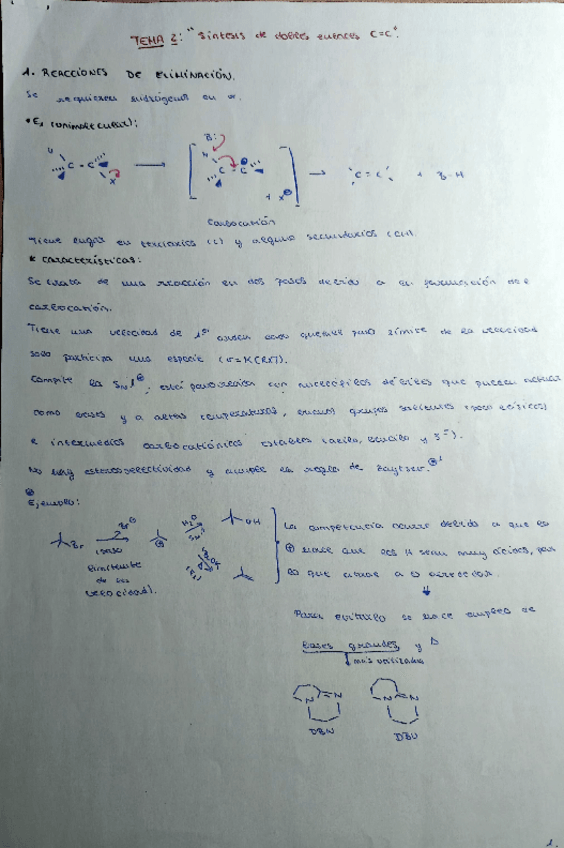 TEMA 2: "Síntesis de dobles enlaces C=C".
1. REACCIONES DE ELIMINACIÓN.
Se requieren hidrógenos en α.
* E₁ (unimolecular):
B:
H
C - C
X
C - C
+ X⊖
C = C
+ B-H
Carbocatión
Tiene lugar en terciarios y algunos secundarios
* Características:
Se trata de una reacción en dos pasos debido a la formación de
carbocatión.
Tiene una velocidad de 1er orden dado que en el paso límite de la velocidad
solo participa una especie (v=K[RX]).
Compite la SN1, está favorecida con nucleófilos débiles que puedan actuar
como bases y a altas temperaturas, buenos grupos salientes
e intermedios carbocatiónicos estables (alilo, bencilo y 3º).
No hay estereoselectividad y cumple la regla de Zaytsev.
Ejemplo:
Br
Br⊖
(paso
limitante
de la
velocidad).
H₂O
SN1
OH
(E1)
La competencia ocurre debido a que el
⊕ hace que los H sean muy ácidos, por
lo que
Para evitarlo se hace empleo de
bases grandes y Δ
más utilizadas
N
N
N
N
DBN
DBU
1.